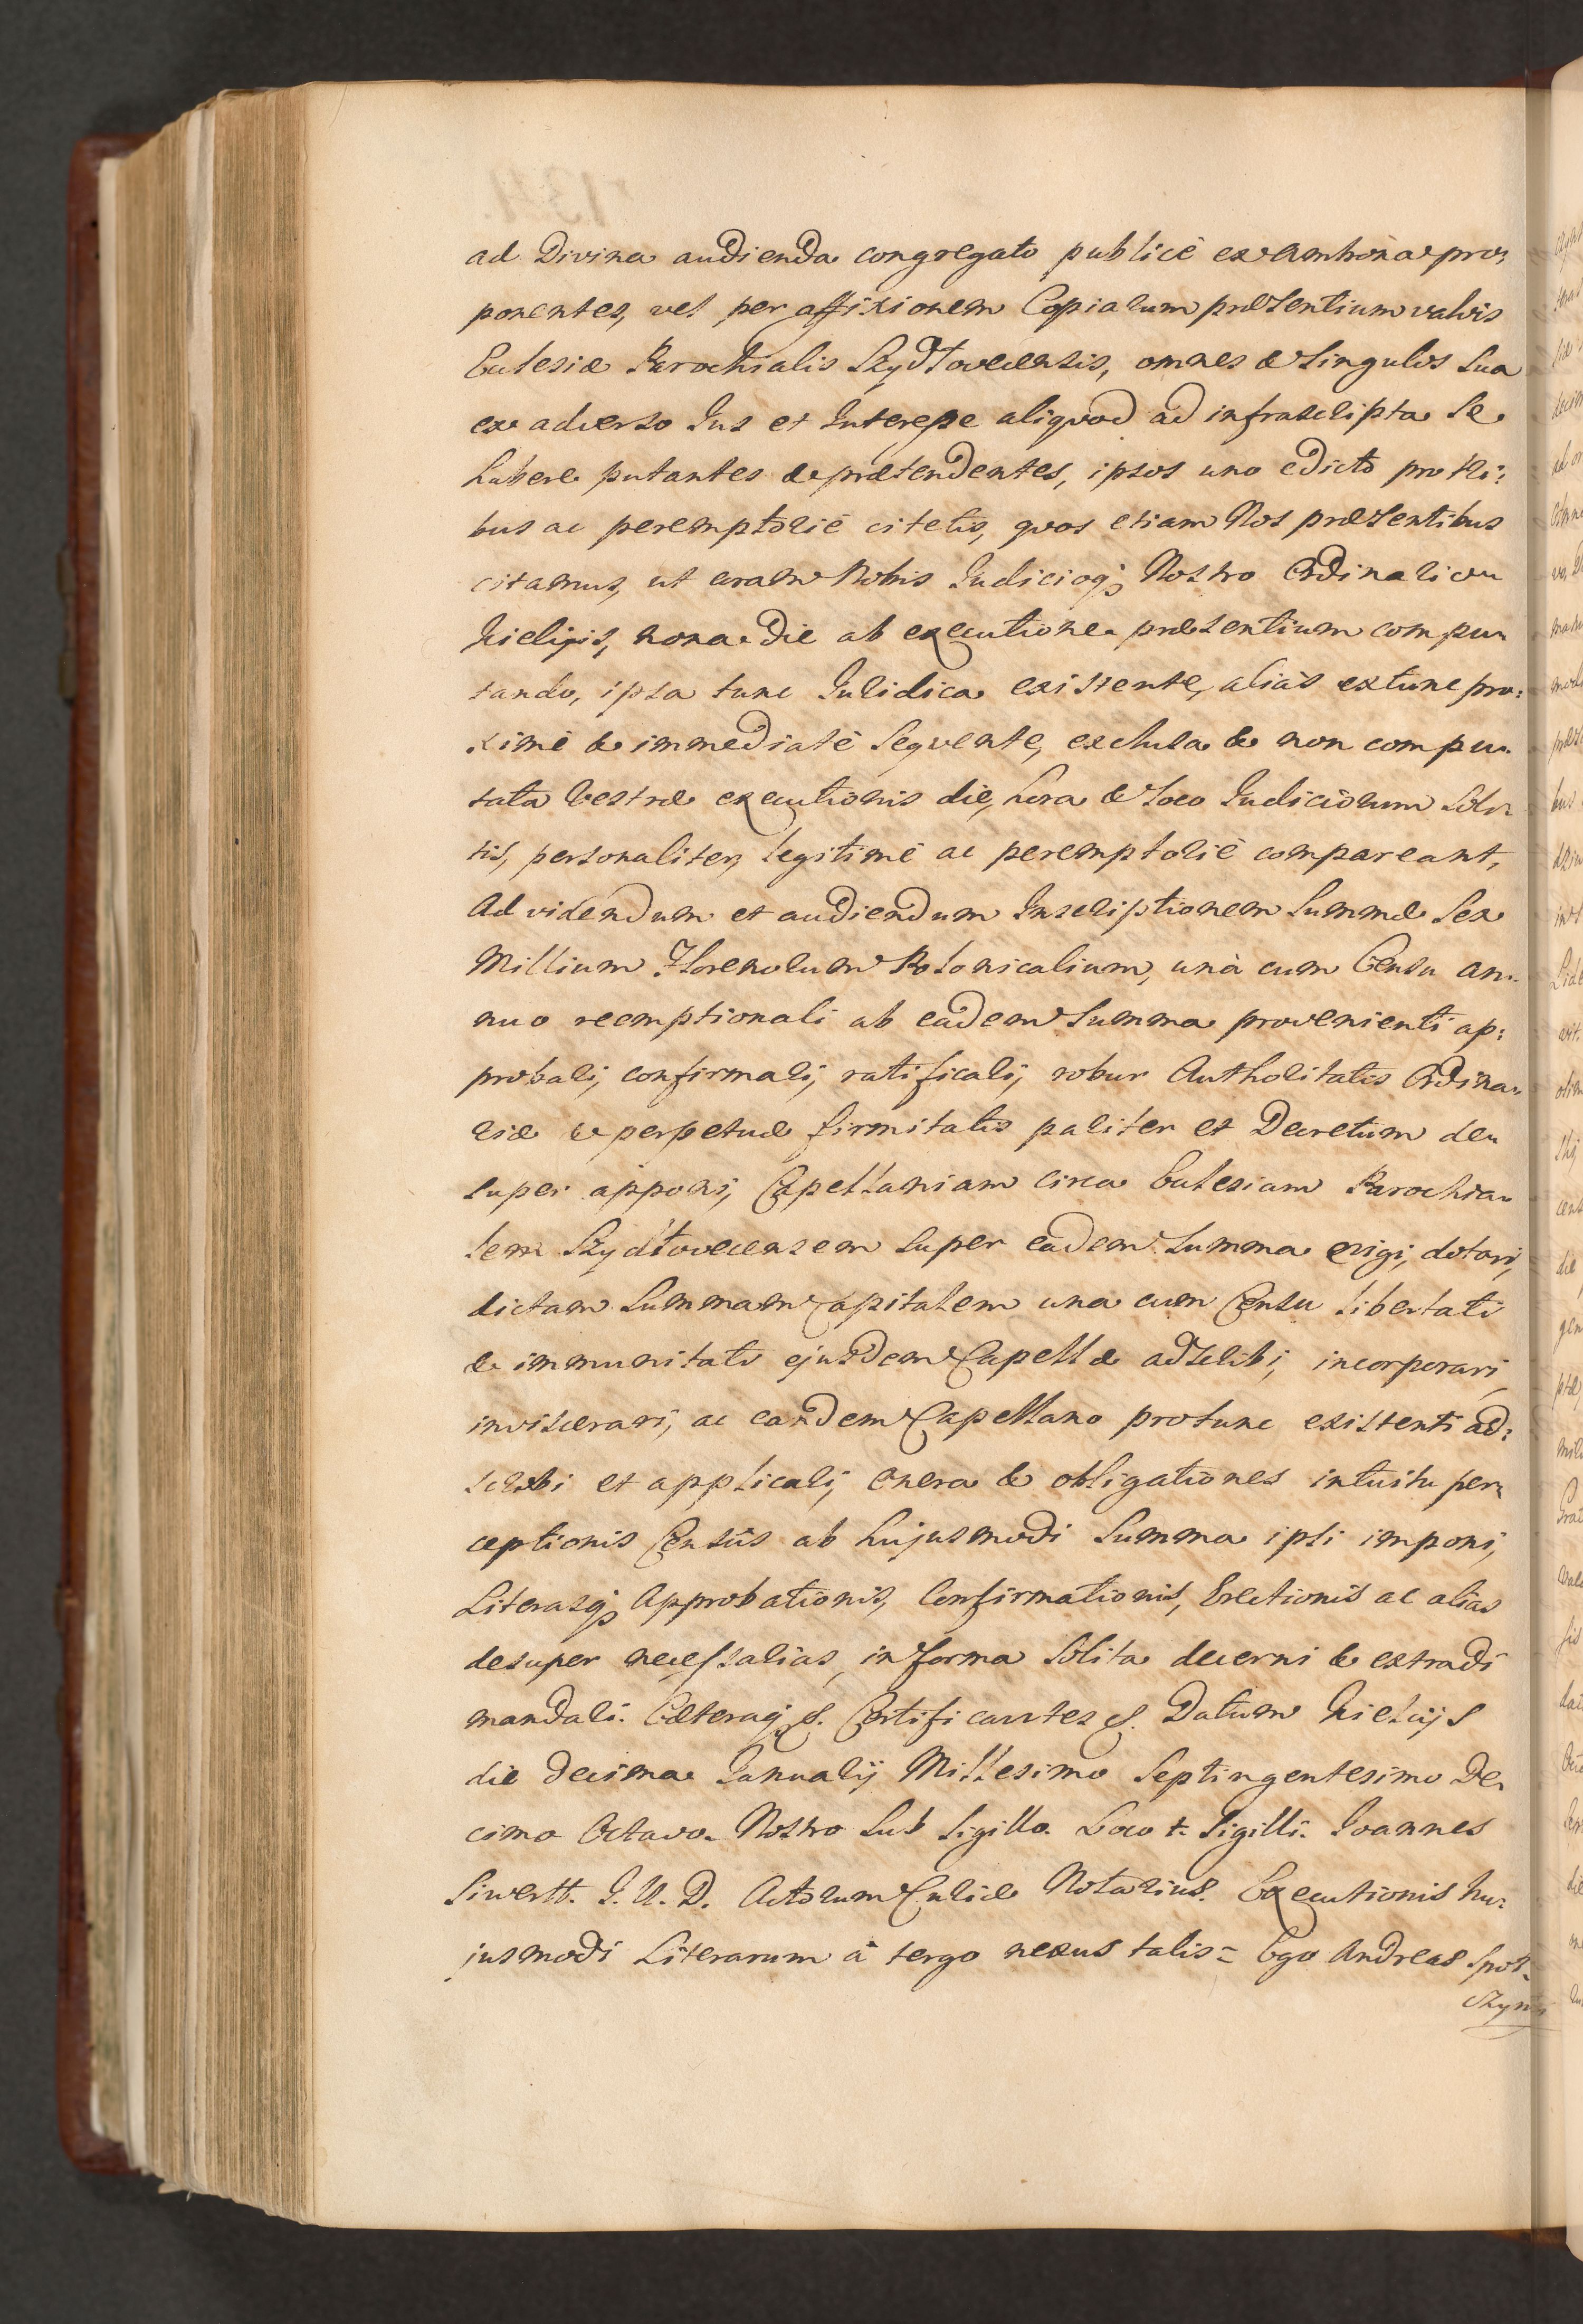 ad Divina audienda congregato publicè ex Ambona pro=
ponentes, vel per affixionem Copiarum præsentium valvis
Eccłesiæ Parochialis Szydłoveciensis, omnes & singulos sua
ex adverso Jus et Interesse aliquod ad infrascripta se
habere putantes & prætendentes, ipsos uno edicto pro tri=
bus ac peremptoriè citetis, quos etiam Nos præsentibus
citamus, ut coram Nobis Judicioq; Nostro Ordinario
Kielcijs, nona die ab executione præsentium compu=
tando, ipsa tunc Juridica existente, aliàs extunc pro=
ximè & immediatè sequente, exclusa & non compu=
tata vestræ executionis die, hora & loco Judiciorum soli=
tis, personaliter, legitimè ac peremptoriè compareant,
Ad videndum et audiendum Inscriptionem Summæ Sex
Millium Florenorum Polonicalium, unà cum Censu an=
nuo reemptionali ab eadem Summa provenienti ap=
probari, confirmari, ratificari, robur Authoritatis Ordina=
riæ & perpetuæ firmitatis pariter et Decretum de=
super apponi, Capellaniam circa Ecclesiam Parochia=
lem Szydłoveciensem super eadem Summa erigi, dotari,
dictam Summam Capitalem una cum Censu libertati
& immunitati ejusdem Capellæ adscribi, incorporari,
inviscerari, ac eandem Capellano protunc existenti ad=
scribi et applicari, onera & obligationes intuitu per=
ceptionis Censûs ab hujusmodi Summa ipsi imponi,
Literasq; Approbationis, Confirmationis, Erectionis ac alias
desuper necessarias, in forma solita decerni & extradi
mandari. Cæteraq; &. Certificantes &. Datum Kielcijs
die decima Januarij Millesimo Septingentesimo De=
cimo Octavo. Nostro sub Sigillo. Loco +. Sigilli. Joannes
Siwertt. J. U. D. Actorum Curiæ Notarius. Executionis hu=
jusmodi Literarum à tergo nexus talis = Ego Andreas Spot=